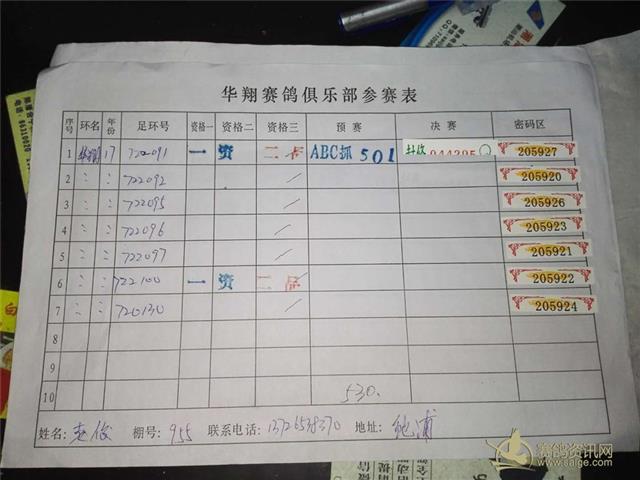 华翔赛鸽俱乐部参赛表
序号 环名 年份 足环号 资格一 资格二 资格三 预赛 决赛 密码区
1 华翔 17 722091 一 资 二 ABC抓 501 205927
2 722092 205920
3 722095 205926
4 722096 205923
5 722097 205921
6 722100 一 资 二 205922
7 720130 205924
8
9
10 530.
姓名: 赵俊 棚号: 955 联系电话: 地址:
赛鸽资讯网
www.saige.com